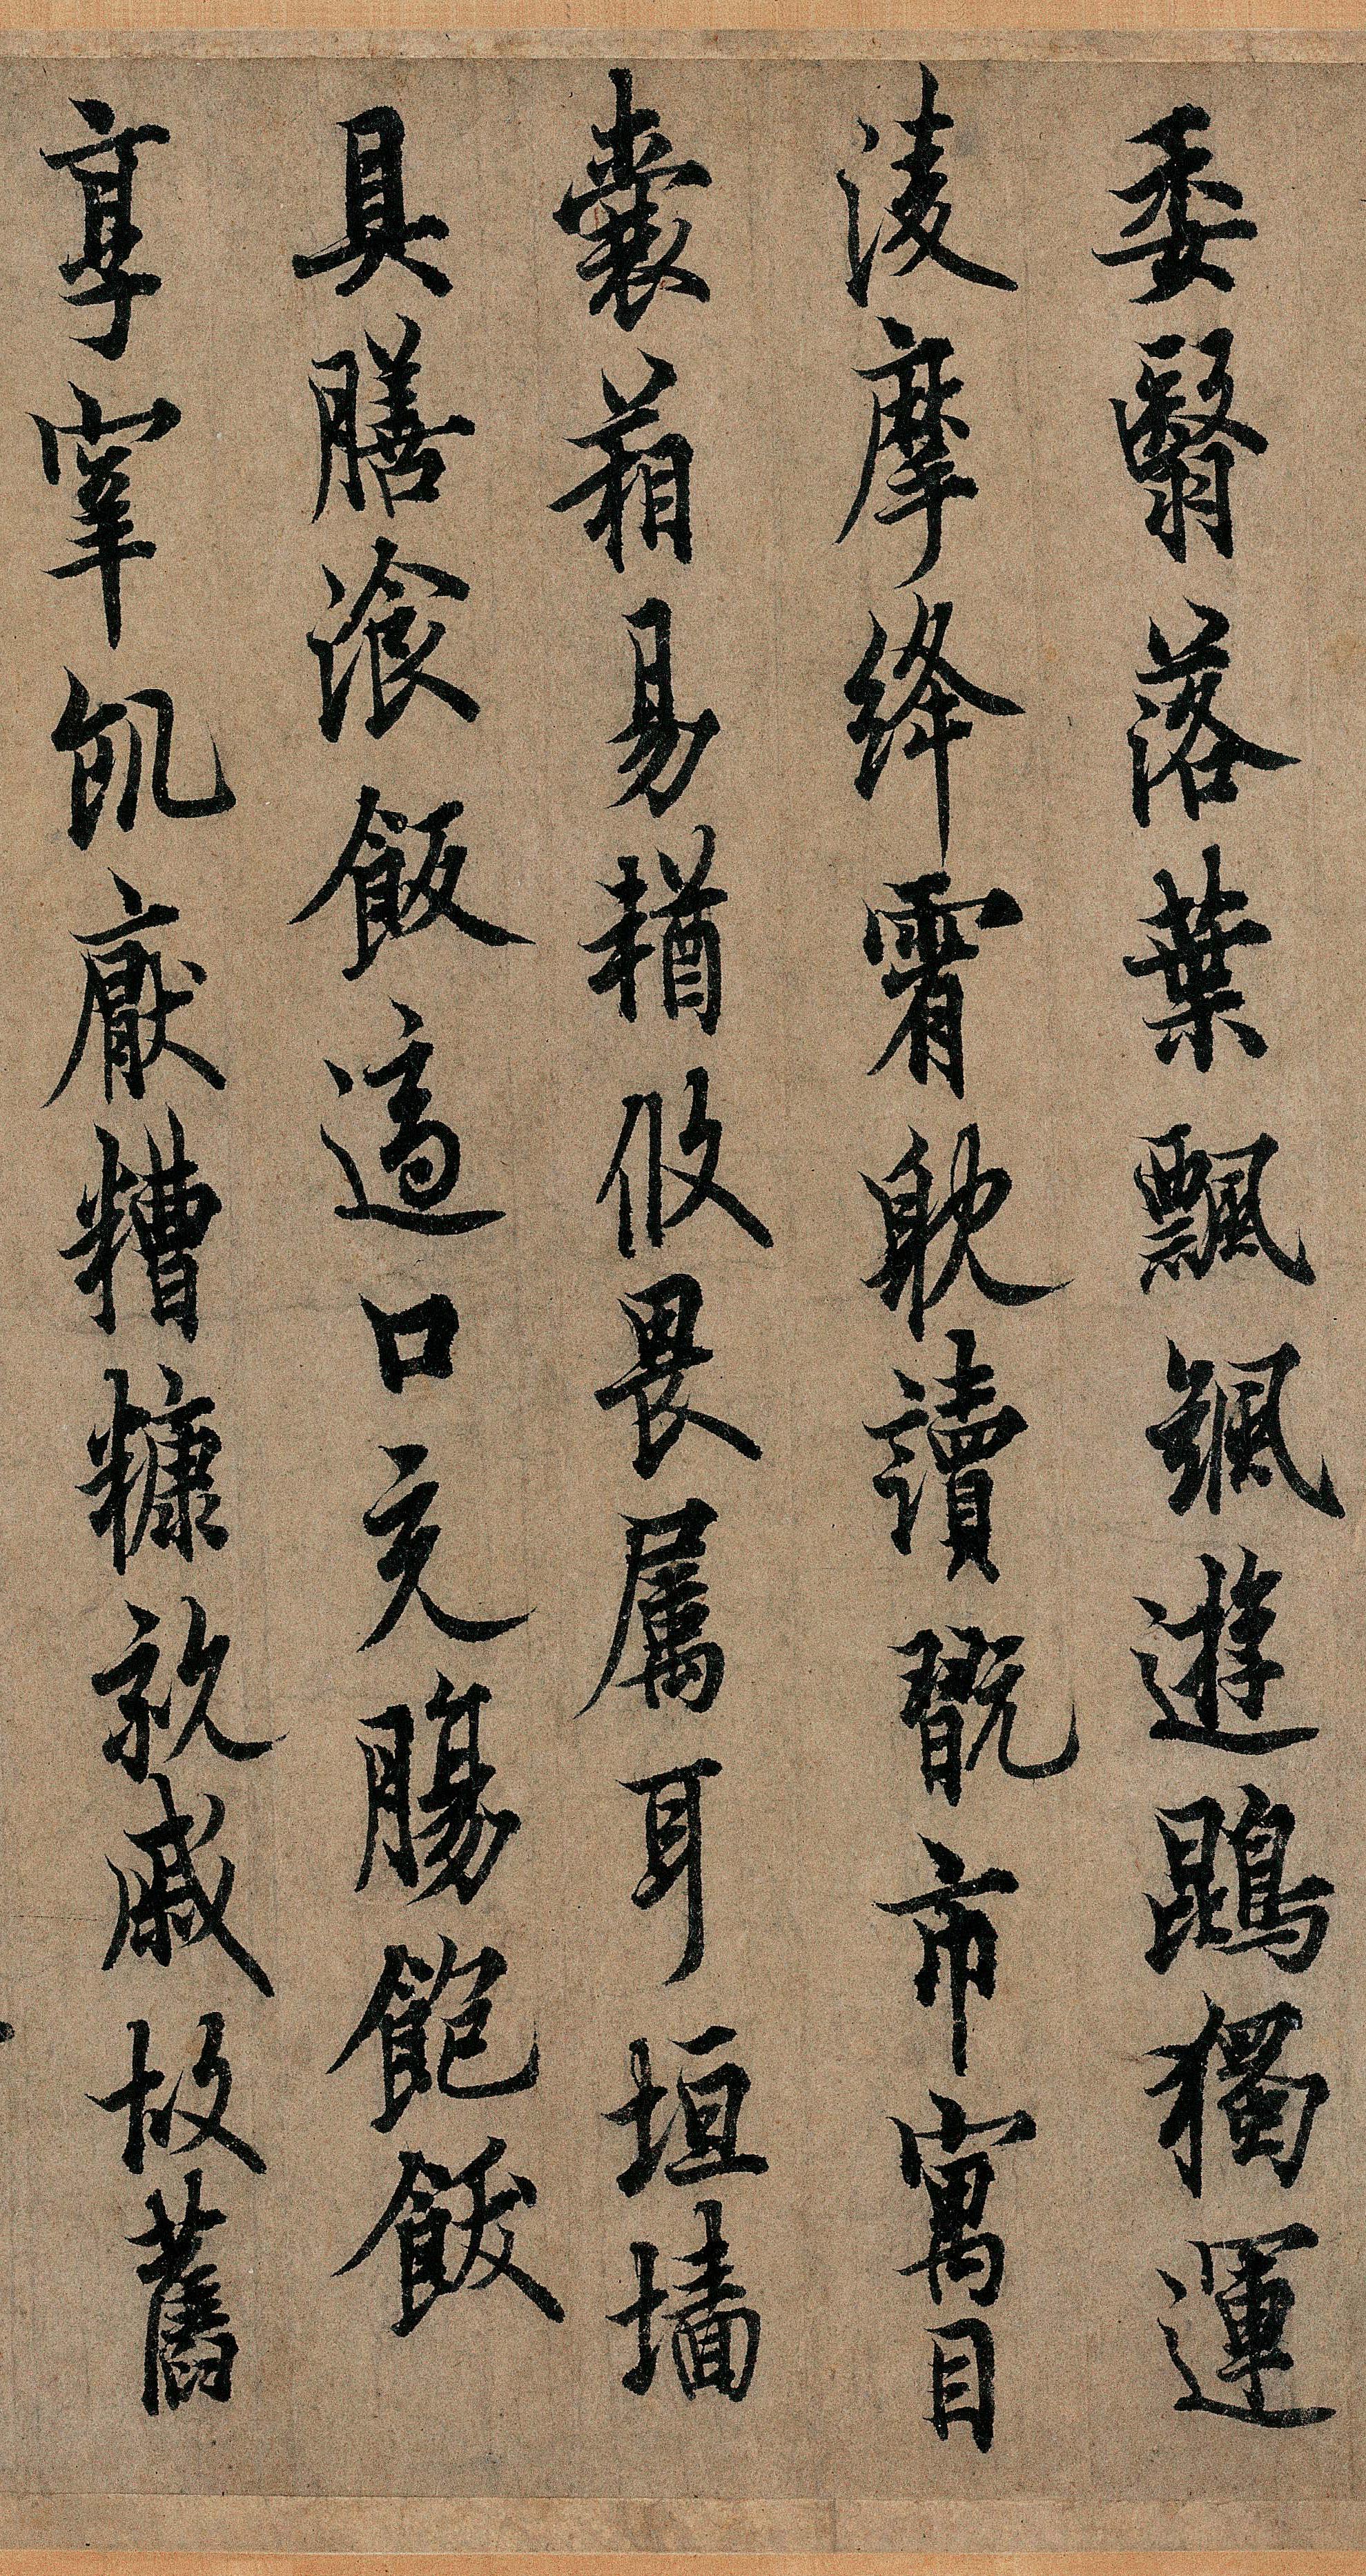 委翳落葉飄颻遊鵾獨運
淩摩絳霄躭讀翫市寓目
囊葙易輶攸畏屬耳垣墙
具膳湌飯適口充腸飽飫
享宰飢厭糟糠親戚故舊